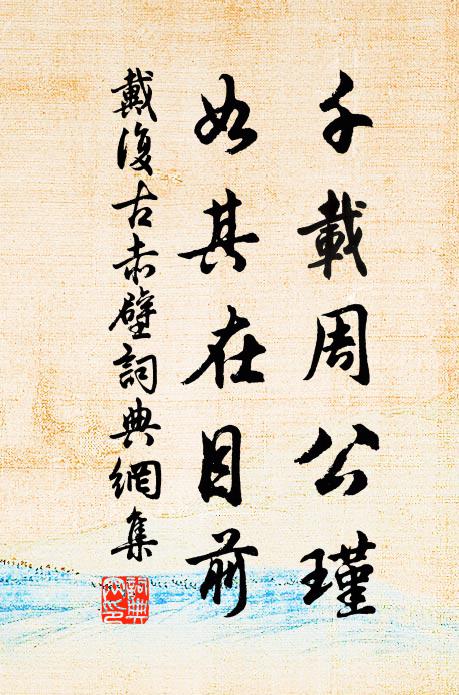 千載周公瑾
如其在目前
戴復古赤壁詞典網集